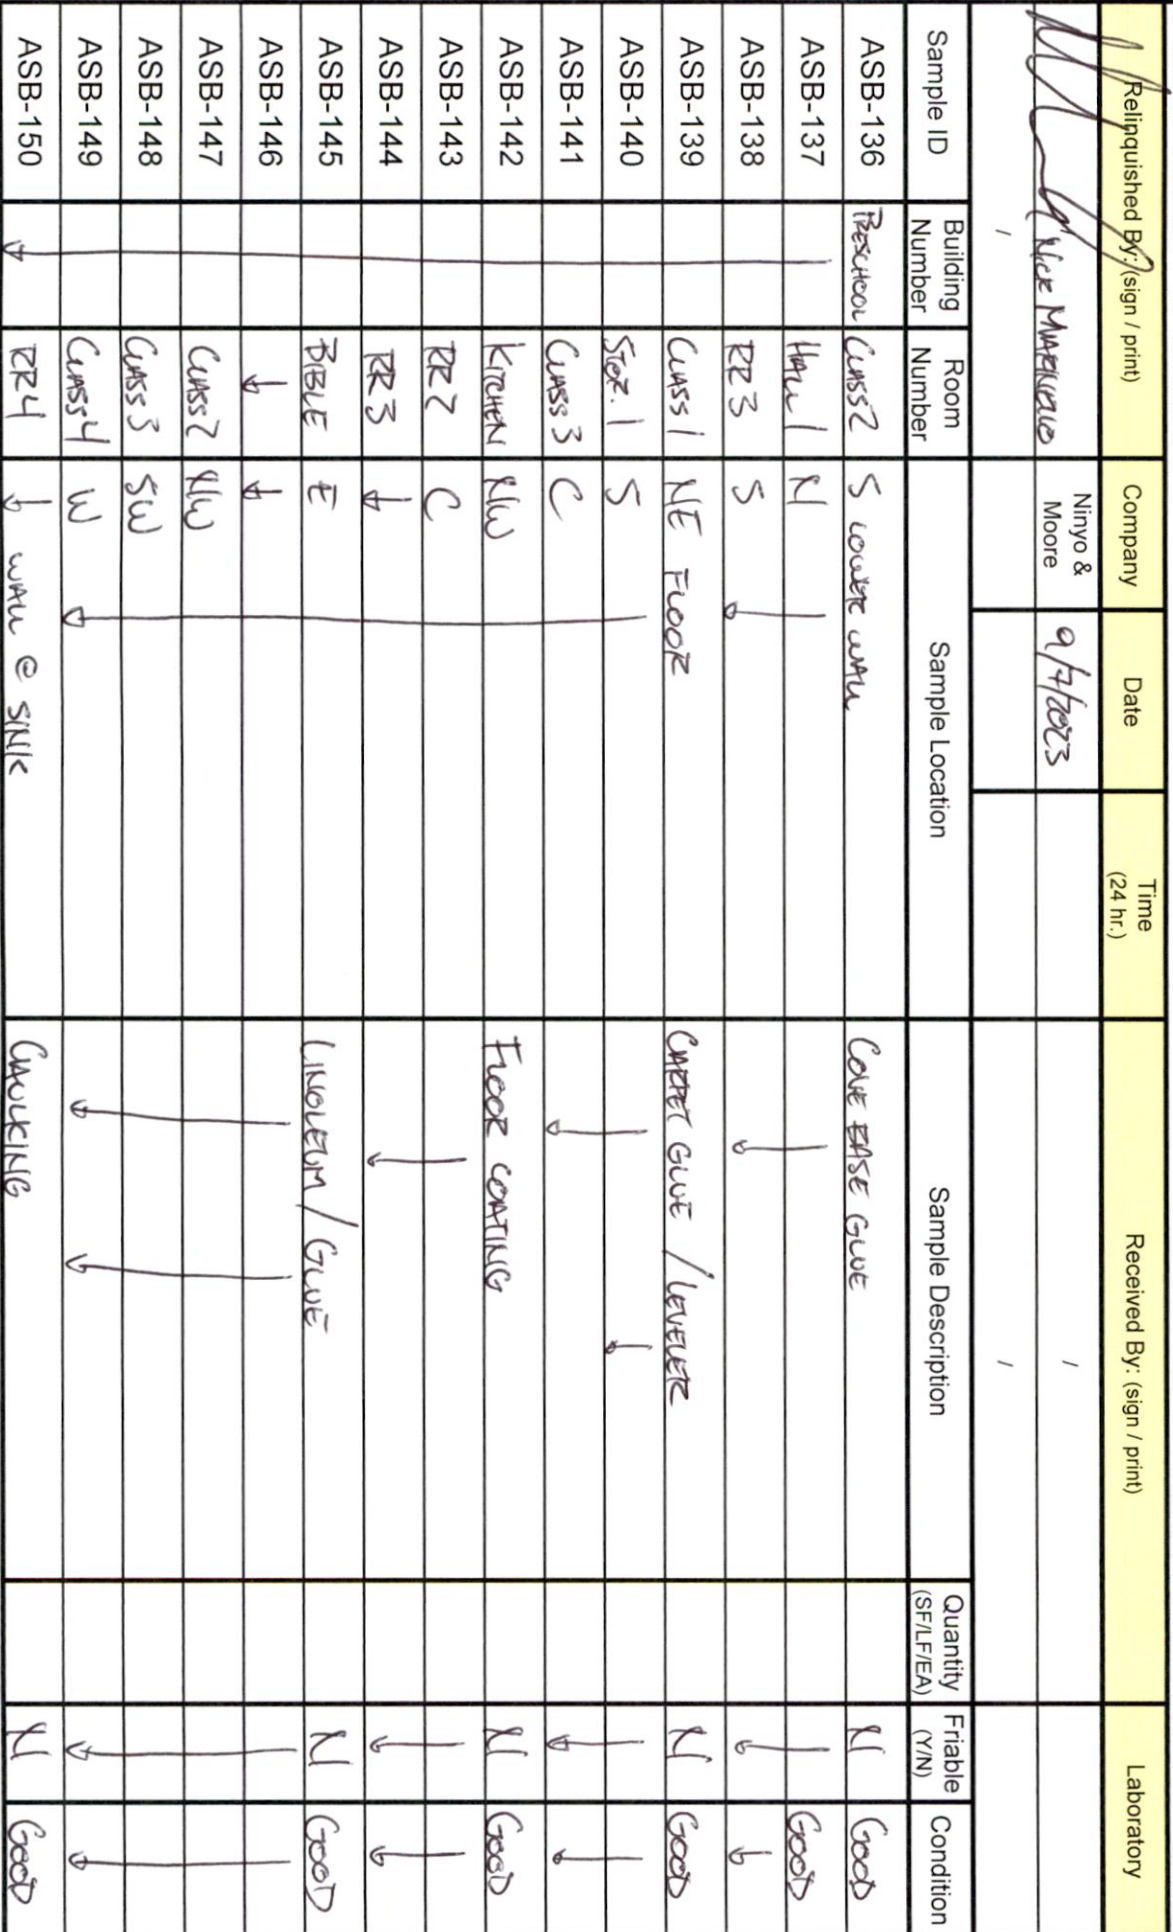 Relinquished By: (sign / print) Company Date Time (24 hr.) Received By: (sign / print) Laboratory
Nick Ninyo & Moore 9/7/2023 /
/ /
Sample ID Building Number Room Number Sample Location Sample Description Quantity (SF/LF/EA) Friable (Y/N) Condition
ASB-136 PRESCHOOL CLASS 2 S LOWER WALL COVE BASE GLUE N GOOD
ASB-137 HALL 1 N GOOD
ASB-138 RR 3 S ↓
ASB-139 CLASS 1 NE FLOOR CARPET GLUE / LEVELER N GOOD
ASB-140 STOR. 1 S ↓
ASB-141 CLASS 3 C ↓ ↓ ↓
ASB-142 KITCHEN NW FLOOR COATING N GOOD
ASB-143 RR 2 C
ASB-144 RR 3 ↓ ↓ ↓ ↓
ASB-145 BIBLE E LINOLEUM / GLUE N GOOD
ASB-146 ↓ ↓
ASB-147 CLASS 2 NW
ASB-148 CLASS 3 SW
ASB-149 CLASS 4 W ↓ ↓ ↓ ↓ ↓
ASB-150 ↓ RR 4 ↓ WALL @ SINK CAULKING N GOOD